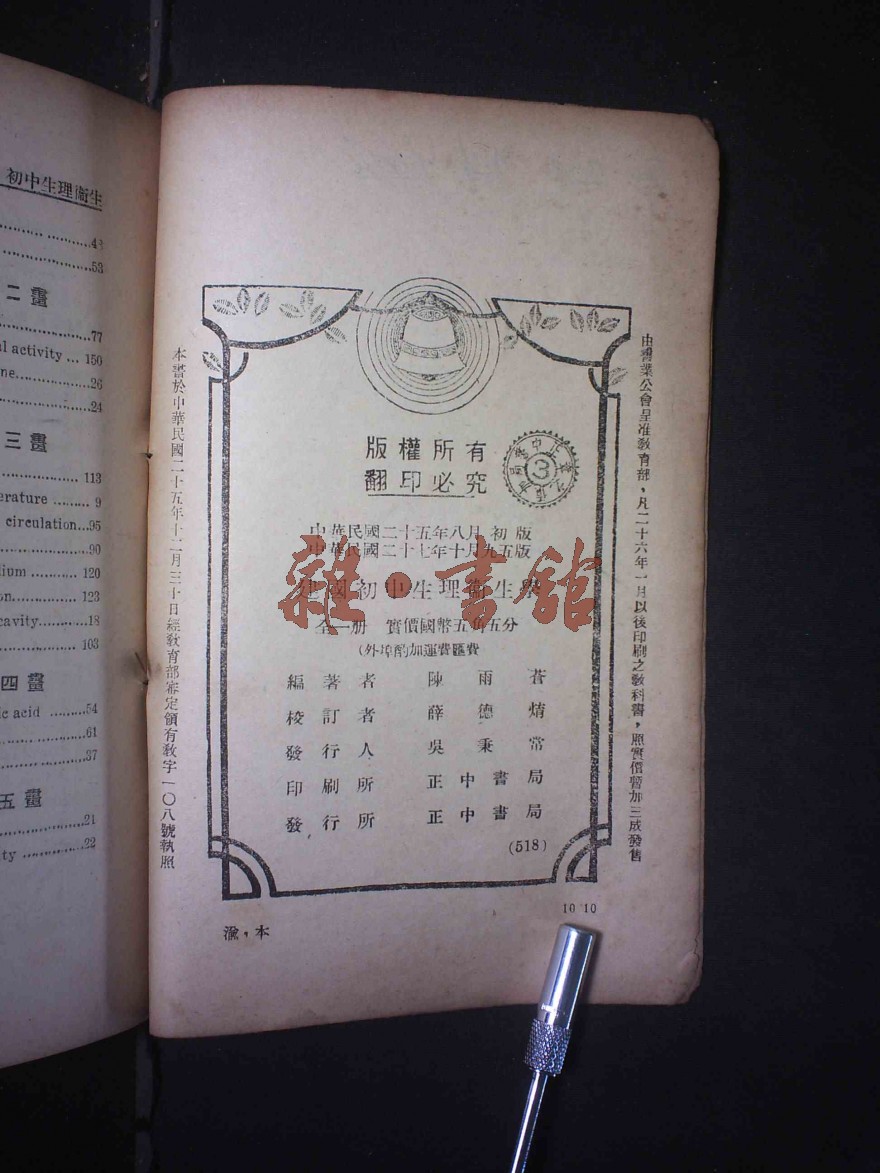 初中生理衞生
43
53
二畫
77
al activity ... 150
ne 26
24
三畫
113
erature 9
circulation...95
90
lium 120
on 123
cavity 18
103
四畫
ic acid 54
61
37
五畫
21
ty 22
本書於中華民國二十五年十二月三十日經敎育部審定領有敎字一〇八號執照
由書業公會呈准敎育部，凡二十六年一月以後印刷之敎科書，照實價暫加三成發售
版權所有
翻印必究
3
中華民國二十五年八月初版
中華民國二十七年十月九五版
建國初中生理衞生學
雜·書館
全一册 實價國幣五角五分
(外埠酌加運費匯費
編著者 陳雨蒼
校訂者 薛德焴
發行人 吳秉常
印刷所 正中書局
發行所 正中書局
(518)
10 10
渝，本